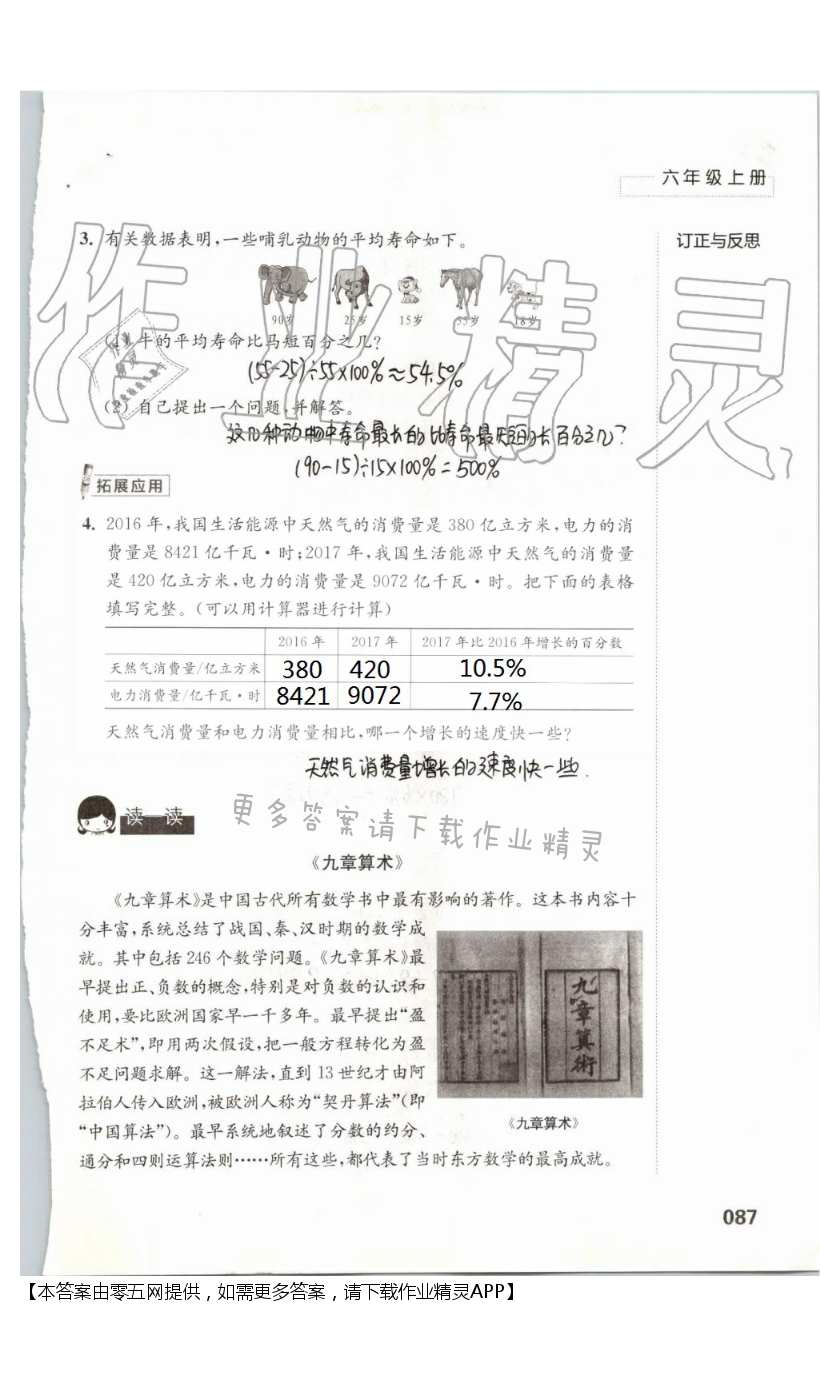 六年级上册
3. 有关数据表明,一些哺乳动物的平均寿命如下。
订正与反思
90岁 25岁 15岁 55岁 18岁
(1) 牛的平均寿命比马短百分之几?
(55-25)÷55×100%≈54.5%
(2) 自己提出一个问题,并解答。
这几种动物中寿命最长的比寿命最短的长百分之几?
(90-15)÷15×100%=500%
拓展应用
4. 2016年,我国生活能源中天然气的消费量是380亿立方米,电力的消
费量是8421亿千瓦·时;2017年,我国生活能源中天然气的消费量
是420亿立方米,电力的消费量是9072亿千瓦·时。把下面的表格
填写完整。(可以用计算器进行计算)
2016年 2017年 2017年比2016年增长的百分数
天然气消费量/亿立方米 380 420 10.5%
电力消费量/亿千瓦·时 8421 9072 7.7%
天然气消费量和电力消费量相比,哪一个增长的速度快一些?
天然气消费量增长的速度快一些.
读一读
更多答案请下载作业精灵
《九章算术》
《九章算术》是中国古代所有数学书中最有影响的著作。这本书内容十
分丰富,系统总结了战国、秦、汉时期的数学成
就。其中包括246个数学问题。《九章算术》最
早提出正、负数的概念,特别是对负数的认识和
使用,要比欧洲国家早一千多年。最早提出“盈
不足术”,即用两次假设,把一般方程转化为盈
不足问题求解。这一解法,直到13世纪才由阿
拉伯人传入欧洲,被欧洲人称为“契丹算法”(即
“中国算法”)。最早系统地叙述了分数的约分、
通分和四则运算法则……所有这些,都代表了当时东方数学的最高成就。
九章算術
《九章算术》
087
作业精灵
【本答案由零五网提供，如需更多答案，请下载作业精灵APP】